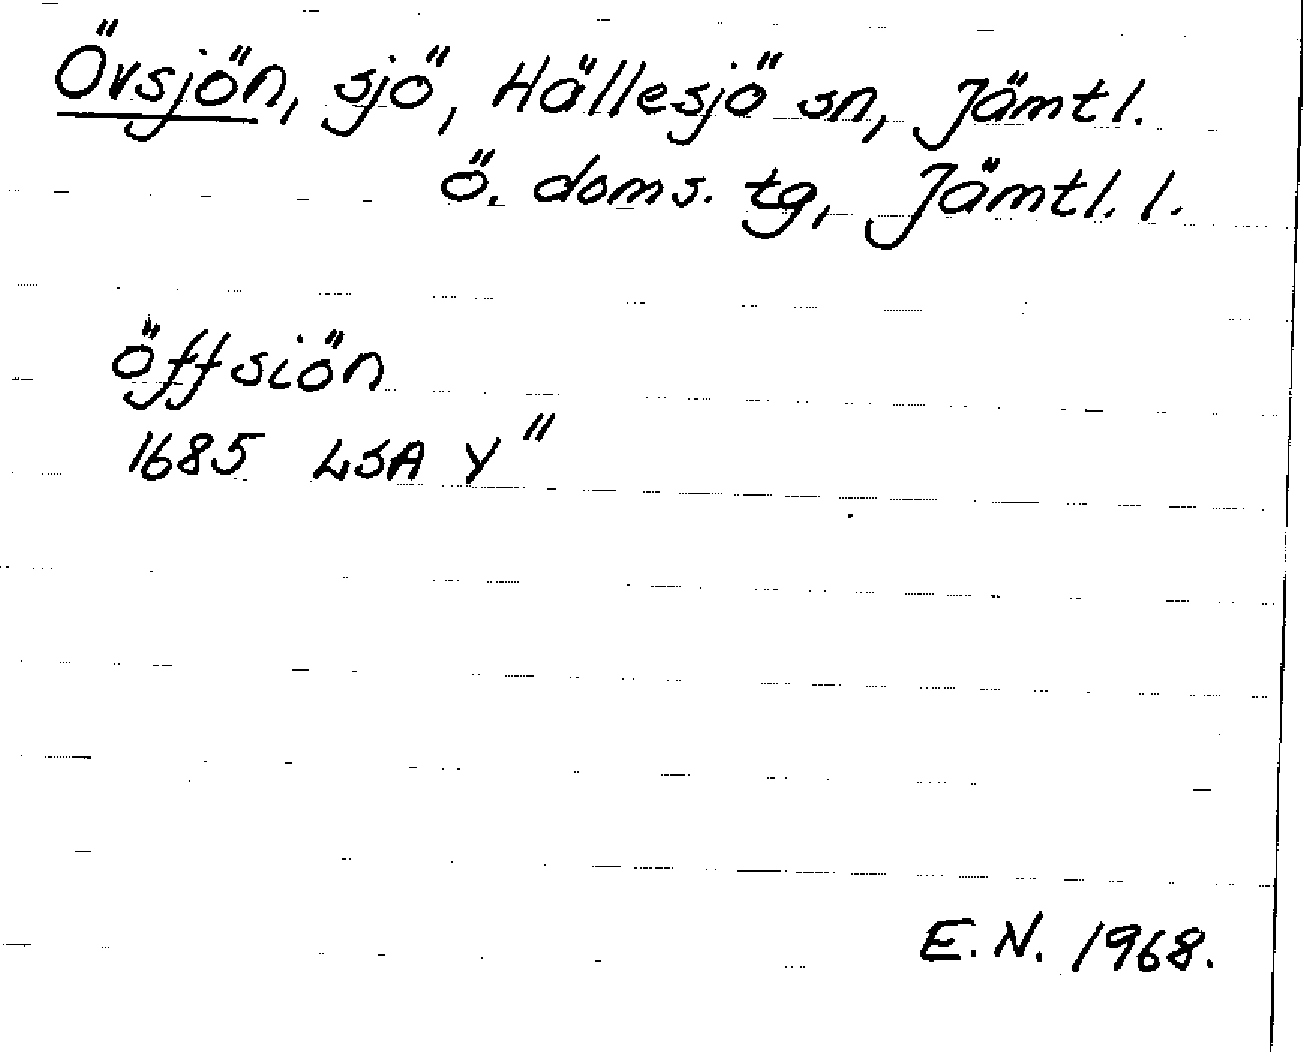 Övsjön, sjö, Hällesjö sn, Jämtl.
Ö. doms. tg, Jämtl. l.
öffsiön
1685 LSA Y"
E.N. 1968.